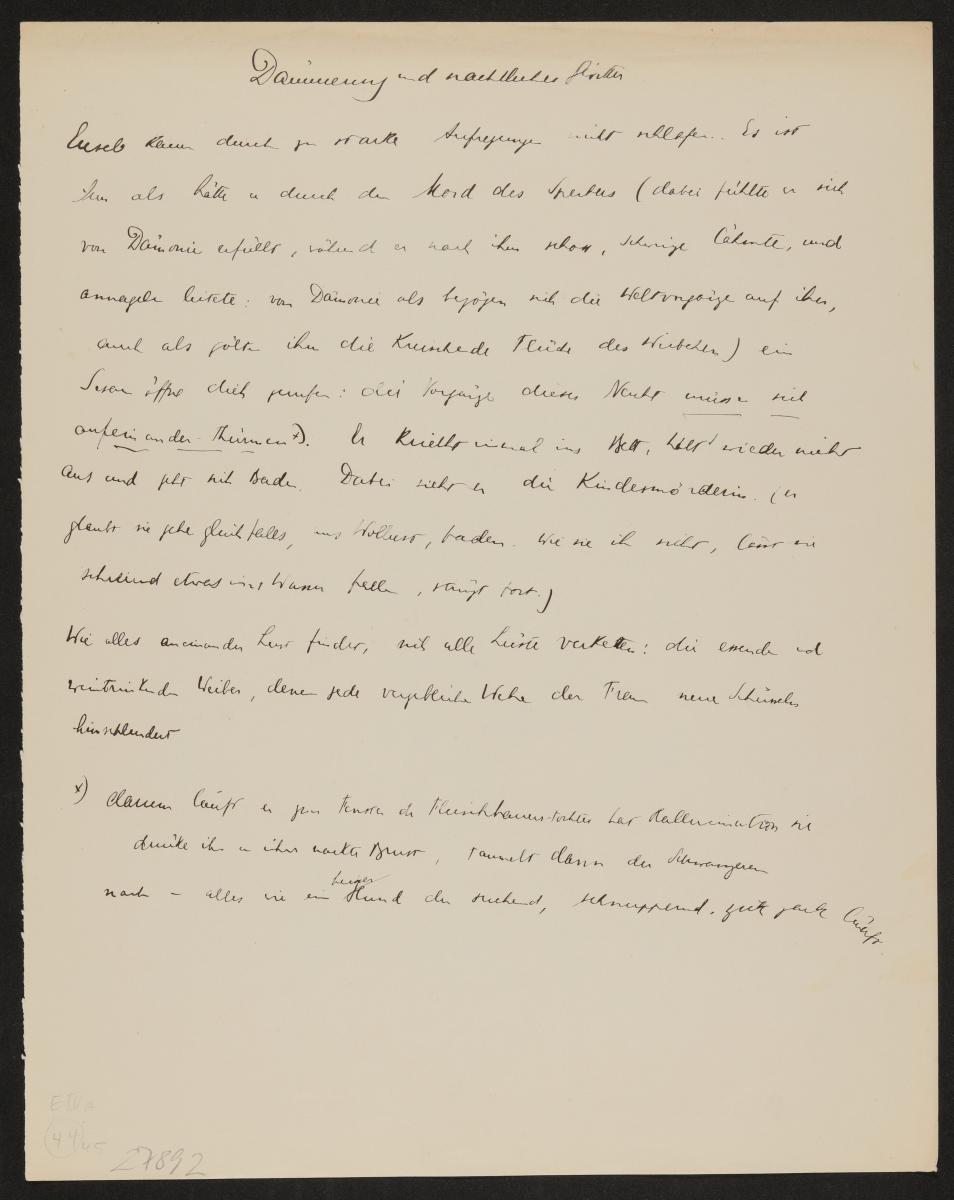 Dämmerung und nachtliches Gewitter
Euseb kann durch zu starke Aufregungen nicht schlafen.. Es ist
ihm als hätte er durch den Mord des Sperbers (dabei fühlte er sich
von Dämonie erfüllt, während er nach ihm schoss, Schwinge lähmte, und
annageln leitete: von Dämonie als bezögen sich die Weltvorgänge auf ihn,
auch als gölte ihm die kreischende Flüche des Weibchen) ein
Sesam öffne dich gerufen: die Vorgänge dieser Nacht müssen sich
aufeinander-thürmen x). Er kriecht einmal ins Bett, hälts wieder nicht
aus und geht sich Baden. Dabei sieht er die Kindesmörderin. (er
glaubt sie gehe gleichfalls, aus Wollust, baden. Wie sie ihn sieht, lässt sie
schreiend etwas ins Wasser fallen, springt fort.)
Wie alles aneinander Lust findet, sich alle Lüste verketten: die essenden und
weintrinkenden Weiber, denen jede vergebliche Wehe der Frau neue Schüsseln
hinschleudert
x) darum läuft er zum Fenster der Fleischhauers-tochter hat Halluzination sie
drücke ihn an ihre nackte Brust, taumelt dann der Schwangeren
nach – alles wie ein Hund der suchend, schnuppernd, zick zack läuft.
27892